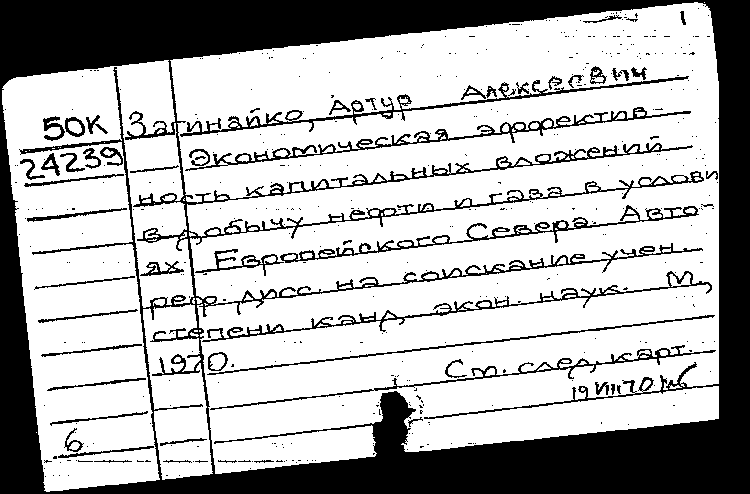 1
50К Загинайко, Артур Алексеевич
24239 Экономическая эффектив-
ность капитальных вложений
в добычу нефти и газа в услови
ях Европейского Севера. Авто-
реф. дисс. на соискание учен.
степени канд. экон. наук. М.,
1970.
См. след. карт.
19 VIII 70
6